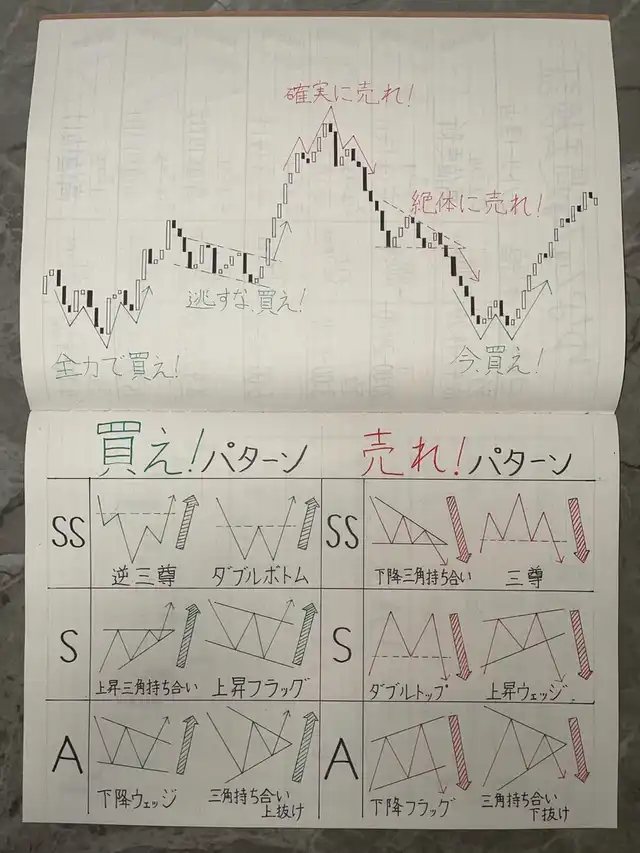 確実に売れ!
絶体に売れ!
逃すな、買え!
全力で買え!
今、買え!
買え!パターン 売れ!パターン
SS
逆三尊
ダブルボトム
SS
下降三角持ち合い
三尊
S
上昇三角持ち合い
上昇フラッグ
S
ダブルトップ
上昇ウェッジ
A
下降ウェッジ
三角持ち合い
上抜け
A
下降フラッグ
三角持ち合い
下抜け